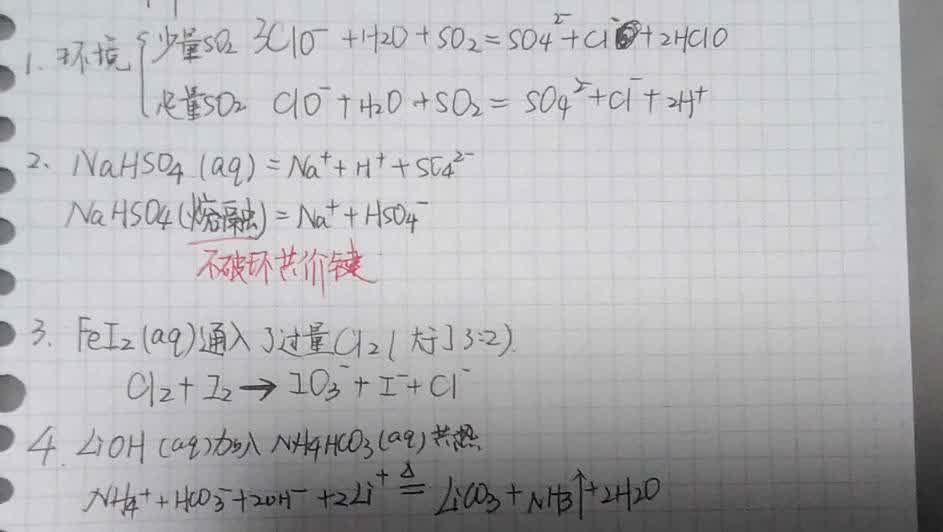 1. 环境 { 少量SO2 3ClO⁻ + H2O + SO2 = SO4²⁻ + Cl⁻ + 2HClO
足量SO2 ClO⁻ + H2O + SO2 = SO4²⁻ + Cl⁻ + 2H⁺
2、NaHSO4 (aq) = Na⁺ + H⁺ + SO4²⁻
NaHSO4(熔融) = Na⁺ + HSO4⁻
不破环共价键
3. FeI2(aq)通入了过量Cl2(大于3:2).
Cl2 + I2 → IO3⁻ + I⁻ + Cl⁻
4. LiOH (aq)加入 NH4HCO3(aq) 共热
NH4⁺ + HCO3⁻ + 2OH⁻ + 2Li⁺ ≜ LiCO3 + NH3↑ + 2H2O